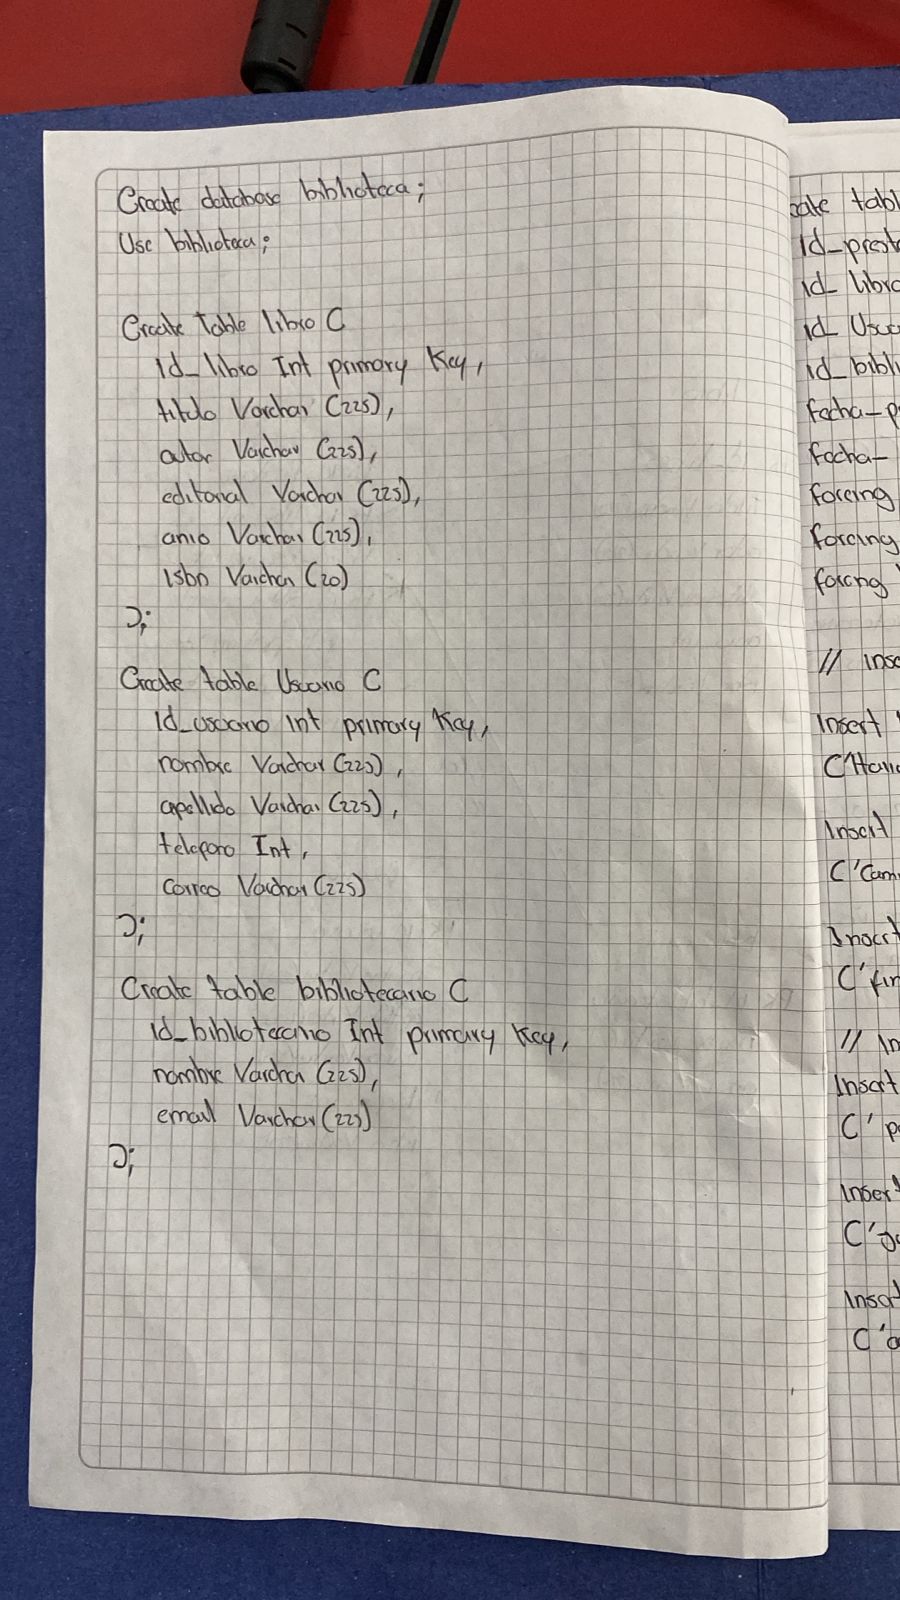 Create database biblioteca;
Use biblioteca;
Create table libro (
id_libro Int primary Key,
titulo Varchar (225),
autor Varchar (225),
editorial Varchar (225),
anio Varchar (225),
isbn Varchar (20)
);
Create table Usuario (
id_usuario Int primary Key,
nombre Varchar (225),
apellido Varchar (225),
telefono Int,
correo Varchar (225)
);
Create table bibliotecario (
id_bibliotecario Int primary Key,
nombre Varchar (225),
email Varchar (225)
);
tabl
id_prest
id_libro
id_Usua
id_bibli
fecha_p
fecha_
foreing
foreing
foreing
// inse
Insert
Insert
('Cam
Insert
// In
Insert
('p
Insert
Insert